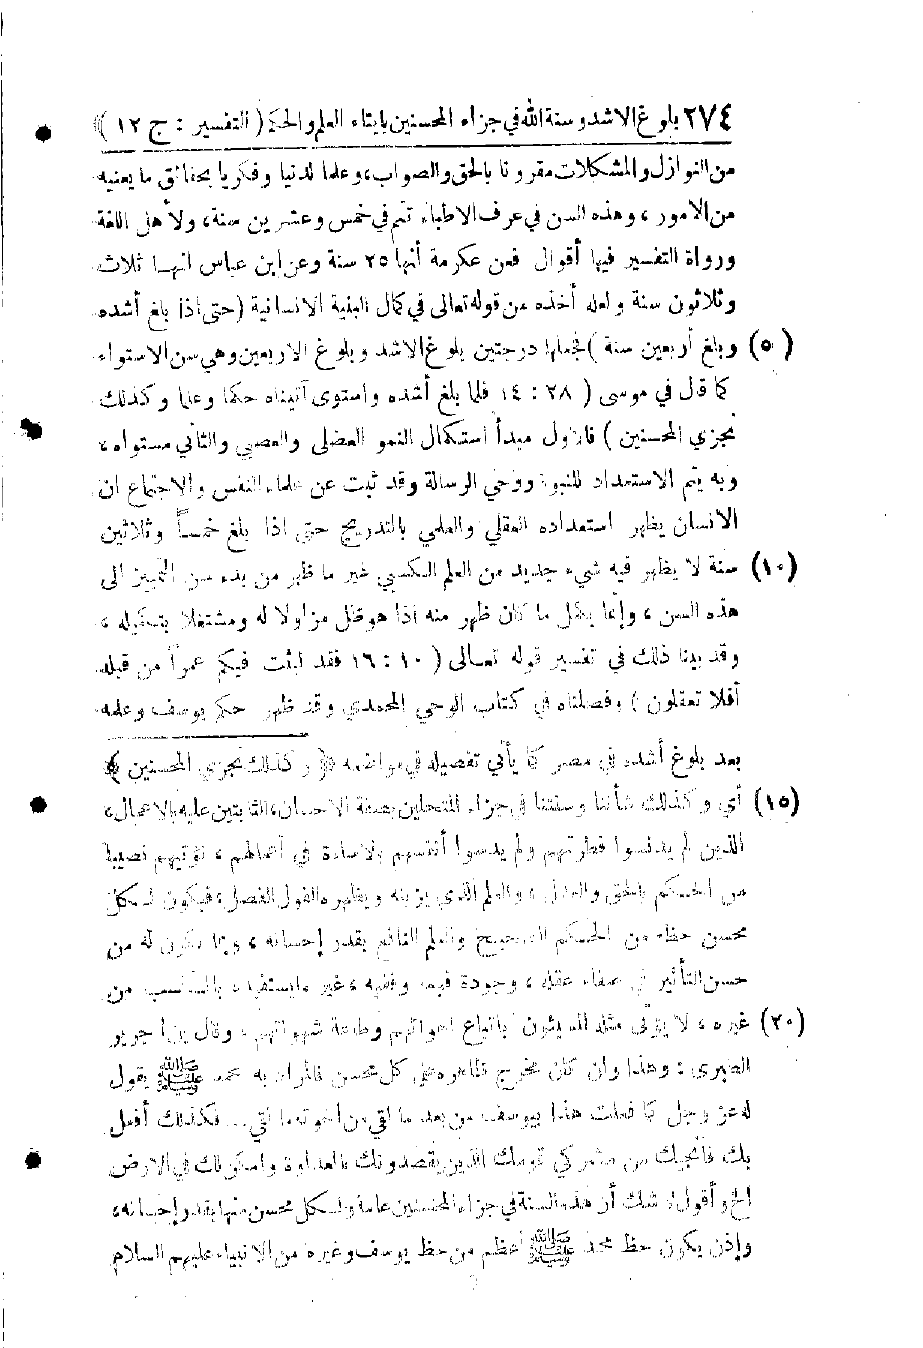 ٢٧٤ بلوغ الاشد وسنة الله في جزاء المحسنين بايتاء العلم والحكم ( التفسير : ج ١٢ )
من النوازل والمشكلات مقرونا بالحق والصواب، وعلما لدنيا وفكريا بحقائق ما يعنيه
من الامور ، وهذه السن في عرف الاطباء تتم في خمس وعشرين سنة، ولأهل اللغة
ورواة التفسير فيها أقوال فعن عكرمة أنها ٢٥ سنة وعن ابن عباس انهـا ثلاث
وثلاثون سنة ولعله أخذه من قوله تعالى في كمال البنية الانسانية (حتى اذا بلغ أشده
(٥) وبلغ أربعين سنة ) فجعلها درجتين بلوغ الاشد وبلوغ الاربعين وهي سن الاستواء
كما قال في موسى ( ٢٨ : ١٤ فلما بلغ أشده واستوى آتيناه حكما وعلما وكذلك
نجزي المحسنين ) فالاول مبدأ استكمال النمو العضلي والعصبي والثاني مستواه ،
وبه يتم الاستعداد للنبوة ووحي الرسالة وقد ثبت عن علماء النفس والاجتماع ان
الانسان يظهر استعداده العقلي والعلمي بالتدريج حتى اذا بلغ خمساً وثلاثين
(١٠) سنة لا يظهر فيه شيء جديد من العلم الكسبي غير ما ظهر من بدء سن التمييز الى
هذه السن ، وإنما يكمل ما كان ظهر منه اذا هو ظل مزاولا له ومشتغلا بتكميله ،
وقد بينا ذلك في تفسير قوله تعـالى ( ١٠ : ١٦ فقد لبثت فيكم عمراً من قبله
أفلا تعقلون ) وفصلناه في كتاب الوحي المحمدي وقد ظهر حكم يوسف وعلمه
بعد بلوغ أشده في مصر كما يأتي تفصيله في مواضعه ﴿ وكذلك نجزي المحسنين ﴾
(١٥) أي وكذلك شأننا وسنتنا في جزاء المتحلين بصفة الاحسان، الثابتين عليه بالاعمال،
الذين لم يدنسوا فطرتهم ولم يدسوا أنفسهم بالاساءة في أعمالهم ، نؤتيهم نصيبا
من الحكم بالحق والعدل ، والعلم الذي يزينه ويظهره القول الفصل ، فيكون لـكل
محسن حظه من الحكم الصحيح والعلم النافع بقدر إحسانه ، وبما يكون له من
حسن التأثير في صفاء عقله ، وجودة فهمه وفقهه ، غير ما يستفيده بالكسب من
(٢٠) غيره ، لا يؤتى مثله المسيئون باتباع اهوائهم وطاعة شهواتهم ، وقال ابن جرير
الطبري : وهذا وان كان مخرج ظاهره على كل محسن فالمراد به محمد ﷺ يقول
له عز وجل كما فعلت هذا بيوسف من بعد ما لقي من اخوته ما لقي .. فكذلك أفعل
بك فأنجيك من مشركي قومك الذين يقصدونك بالعداوة وامكن لك في الارض
الخ وأقول لا شك أن هذه السنة في جزاء المحسنين عامة ولـكل محسن منها بقدر إحسانه ،
وإذن يكون حظ محمد ﷺ أعظم من حظ يوسف وغيره من الانبياء عليهم السلام